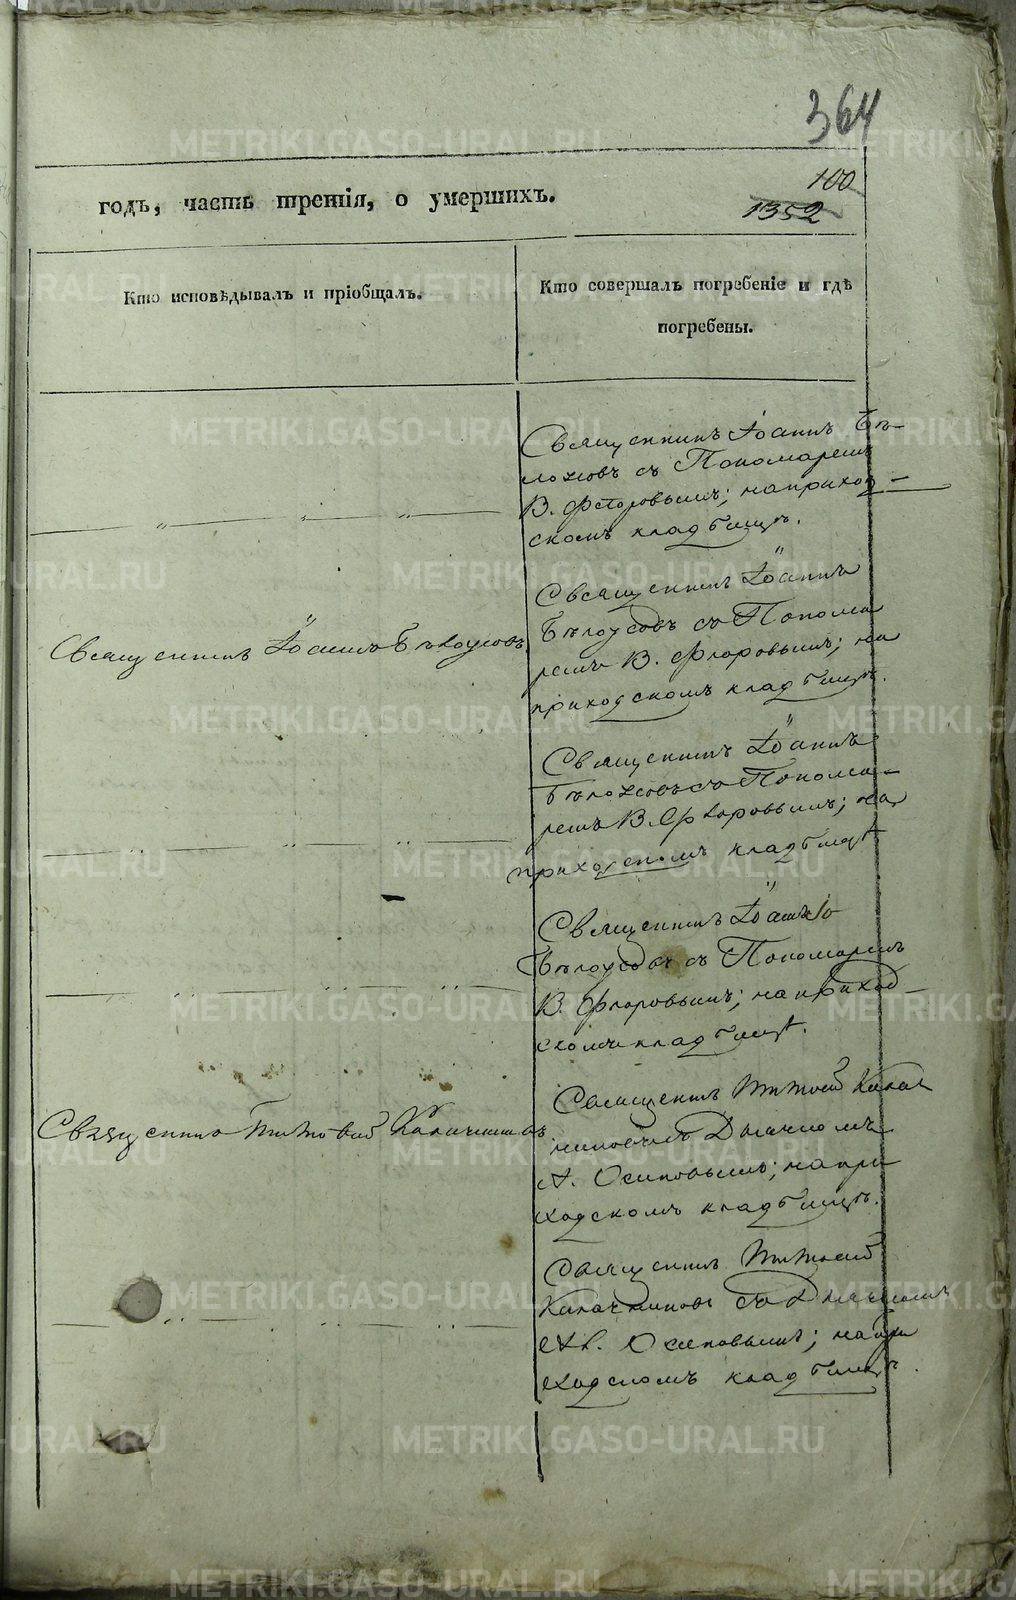 364
годъ, часть третія, о умершихъ.
100
1352
Кто исповѣдывалъ и пріобщалъ.
Кто совершалъ погребеніе и гдѣ
погребены.
Священникъ Іоаннъ Бѣ-
лоусовъ съ Пономаремъ
В. Флоровымъ; на приход-
скомъ кладбищѣ.
Священникъ Іоаннъ Бѣлоусовъ
Священникъ Іоаннъ
Бѣлоусовъ съ Понома
ремъ В. Флоровымъ; на
приходскомъ кладбищѣ.
Священникъ Іоаннъ
Бѣлоусовъ съ Понома-
ремъ В. Флоровымъ; на
приходскомъ кладбищѣ
Священникъ Іоаннъ
Бѣлоусовъ съ Пономаремъ
В. Флоровымъ; на приход-
скомъ кладбищѣ.
Священникъ Тимофей Калачниковъ
Священникъ Тимофей Калач
никовъ съ Дьячкомъ
А. Осиповымъ; на при
ходскомъ кладбищѣ.
Священникъ Тимофей
Калачниковъ съ Дьячкомъ
Ал. Осиповымъ; на при
ходскомъ кладбищѣ.
METRIKI.GASO-URAL.RU